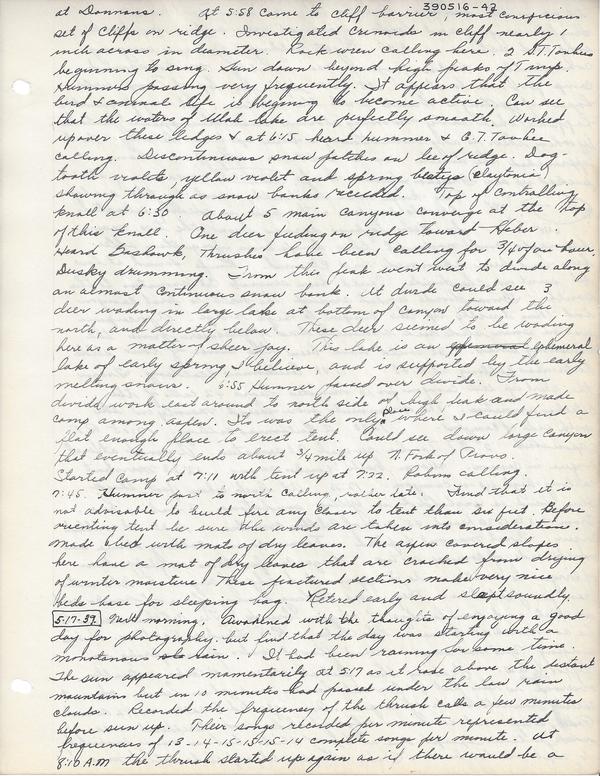 390516-42
at Donnans. At 5:58 come to cliff barrier, most conspicuous
set of cliffs on ridge. Investigated Crinoids in cliff nearly 1
inch across in diameter. Rock wren calling here. 2 S.T. Towhees
beginning to sing. Sun down beyond high peaks of Timp.
Hummers passing very frequently. It appears that the
bird & animal life is begining to become active. Can see
that the waters of Utah Lake are perfectly smooth. Worked
up over these ledges & at 6:15 heard hummer & G.T. Towhee
calling. Discontinuous snow patches on lee of ridge. Dog-
tooth violets, yellow violet and spring beautys (Claytonia)
showing through as snow banks receeded. Top of controlling
knoll at 6:30. About 5 main canyons converge at the top
of this knoll. One deer feeding on ridge toward Heber.
Heard Goshawk, Thrushes have been calling for 3/4 of an hour.
Dusky drumming. From this peak went west to divide along
an almost continuous snow bank. At divide could see 3
deer wading in large lake at bottom of canyon toward the
north, and directly below. These deer seemed to be wading
here as a matter of sheer joy. This lake is an ephemeral
lake of early spring I believe, and is supported by the early
melting snows. 6:55 Hummer passed over divide. From
divide work east around to north side of high peak and made
camp among aspen. Its was the only place where I could find a
flat enough place to erect tent. Could see down large canyon
that eventually ends about 3/4 mile up N. Fork of Provo.
Started camp at 7:11 with tent up at 7:22. Robins calling.
7:45. Hummer past to north calling, rather late. Find that it is
not advisable to build fire any closer to tent than six feet. Before
orienting tent be sure the winds are taken into consideration.
Made bed with mat of dry leaves. The aspen covered slopes
here have a mat of dry leaves that are cracked from drying
of winter moisture. These fractured sections make very nice
beds base for sleeping bag. Retered early and slept soundly.
5-17-39 Next morning. Awakened with the thoughts of enjoying a good
day for photography. but find that the day was starting with a
monotonous rain. It had been raining for some time.
The sun appeared momentarily at 5:17 as it rose above the distant
mountains but in 10 minutes had passed under the low rain
clouds. Recorded the frequency of the thrush calls a few minutes
before sun up. Their songs recorded per minute represented
frequencies of 13-14-15-15-15-14 complete songs per minute. At
8:10 A.M the thrush started up again as if there would be a